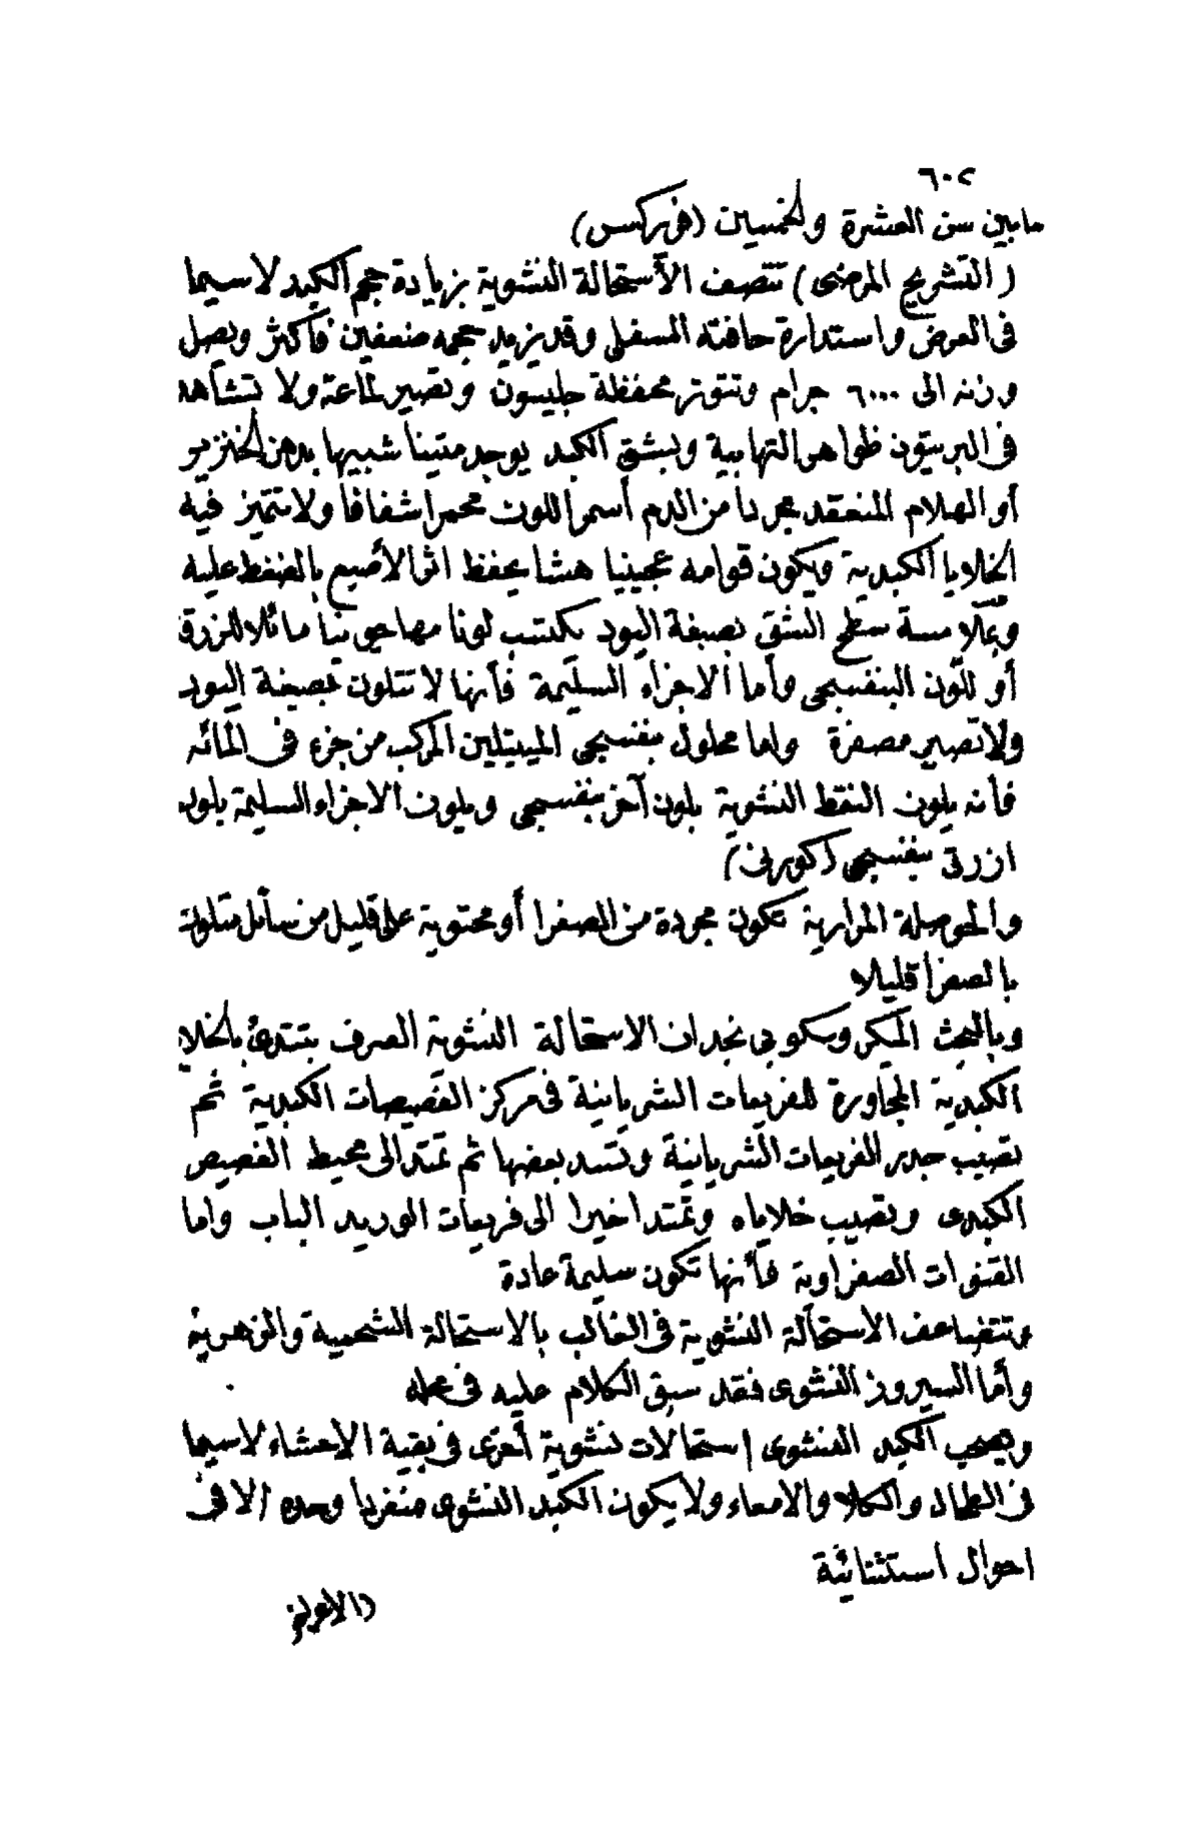 ٦٠٢
مابين سن العشرة والخمسين (فريركس)
(التشريح المرضى) تتصف الأستحالة النشوية بزيادة حجم الكبد لاسيما
فى العرض واستدارة حافته السفلى وقد يزيد حجمه ضعفين فأكثر ويصل
وزنه الى ٦٠٠٠ جرام وتتوتر محفظة جليسون وتصير لماعة ولا تشاهد
فى البرستون ظواهر التهابية وبشق الكبد يوجد متينا شبيها بدهن الخنزير
أو الهلام المنعقد مجردا من الدم أسمر اللون محمرا شفافا ولا تتميز فيه
الخلايا الكبدية ويكون قوامه عجينيا هشا يحفظ اثر الأصبع بالضغط عليه
وبملامسة سطح الشق بصبغة اليود يكتسب لونا مهاجونيا مائلا للزرقة
أو للون البنفسجى وأما الاجزاء السليمة فأنها لا تتلون بصبغة اليود
ولا تصير مصفرة واما محلول بنفسجى الميتيلين المركب من جزء فى المائه
فأنه يلون النقط النشوية بلون آخر بنفسجى ويلون الاجزاء السليمة بلون
ازرق بنفسجى (كورنى)
والحوصلة المرارية تكون مجردة من الصفرا أو محتوية على قليل من سائل متلون
بالصفرا قليلا
وبالبحث الميكروسكوبى نجد ان الاستحالة النشوية الصرف تبتدئ بالخلايا
الكبدية المجاورة للفريعات الشريانية فى مركز الفصيصات الكبدية ثم
تصيب جدر الفريعات الشريانية وتسد بعضها ثم تمتد الى محيط الفصيص
الكبدى وتصيب خلاياه وتمتد اخيرا الى فريعات الوريد الباب واما
القنوات الصفراوية فأنها تكون سليمة عادة
وتتضاعف الاستحالة النشوية فى الغالب بالاستحالة الشحمية والزهرية
وأما السيروز النشوى فقد سبق الكلام عليه فى محله
ويصحب الكبد النشوى استحالات نشوية أخرى فى بقية الاحشاء لاسيما
فى الطحال والكلا والامعاء ولا يكون الكبد النشوى منفردا وحده الا فى
احوال استثنائية
(الاعراض